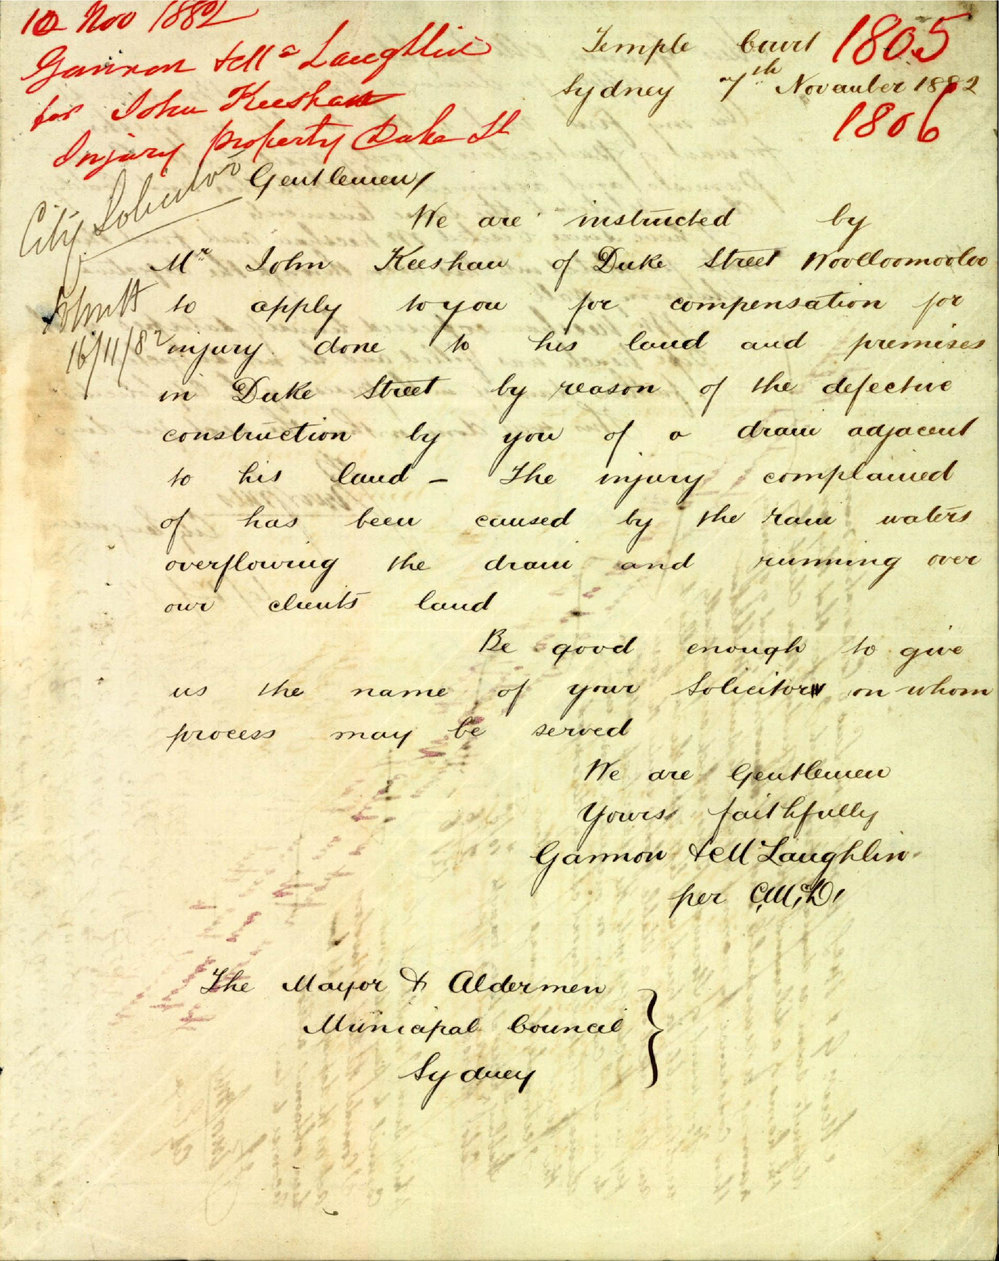 10 Nov 1882
Gannon & McLaughlin
for John Keeshan
Injury property Duke St
Temple Court
Sydney 7th November 1882
1805
1806
City Solicitor
16/11/82
Gentlemen,
We are instructed by
Mr John Keeshan of Duke Street Woolloomooloo
to apply to you for compensation for
injury done to his land and premises
in Duke Street by reason of the defective
construction by you of a drain adjacent
to his land – The injury complained
of has been caused by the rain waters
overflowing the drain and running over
our clients land
Be good enough to give
us the name of your Solicitor on whom
process may be served
We are Gentlemen
Yours faithfully
Gannon & McLaughlin
per C.McD.
The Mayor & Aldermen
Municipal Council
Sydney